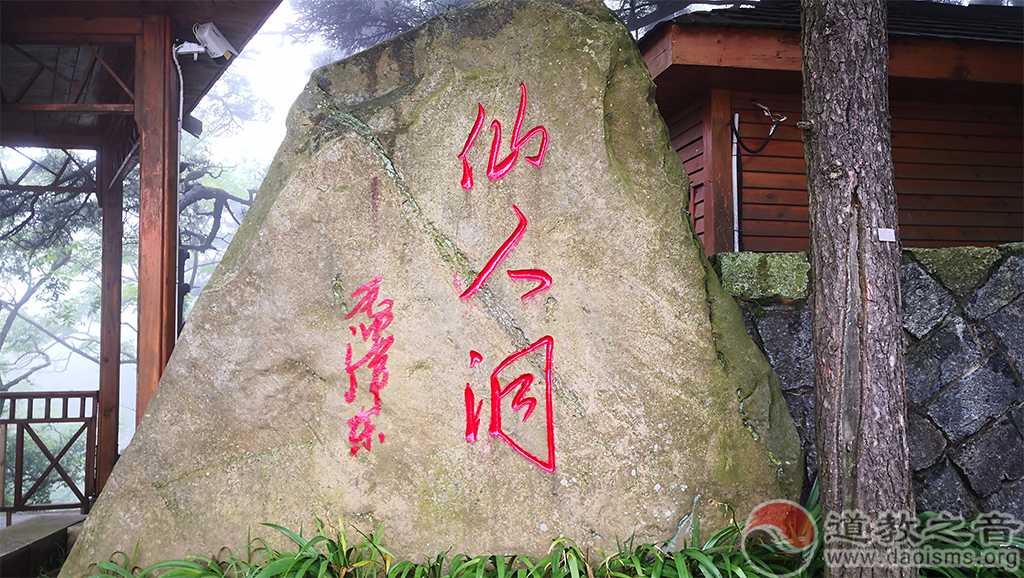 仙人洞
毛泽东
道教之音
www.daoisms.org